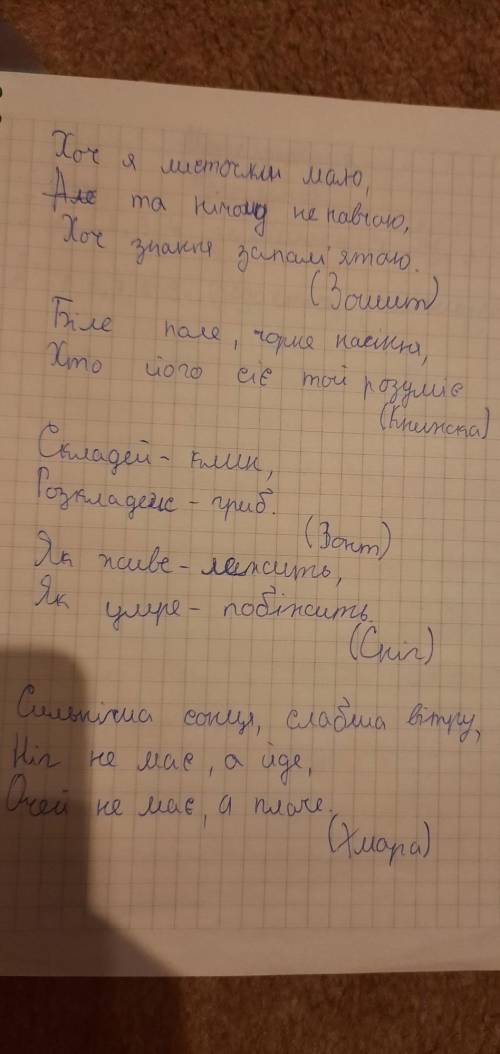 Хоч я листочки маю,
Але та нікого не навчаю,
Хоч знання запам'ятаю.
(Зошит)
Біле поле, чорне насіння,
Хто його сіє той розуміє
(Книжка)
Складей - клин,
Розкладеш - гриб.
(Зонт)
Як живе - лежить,
Як умре - побіжить.
(Сніг)
Сильніша сонця, слабша вітру,
Ніг не має, а йде,
Очей не має, а плаче.
(Хмара)